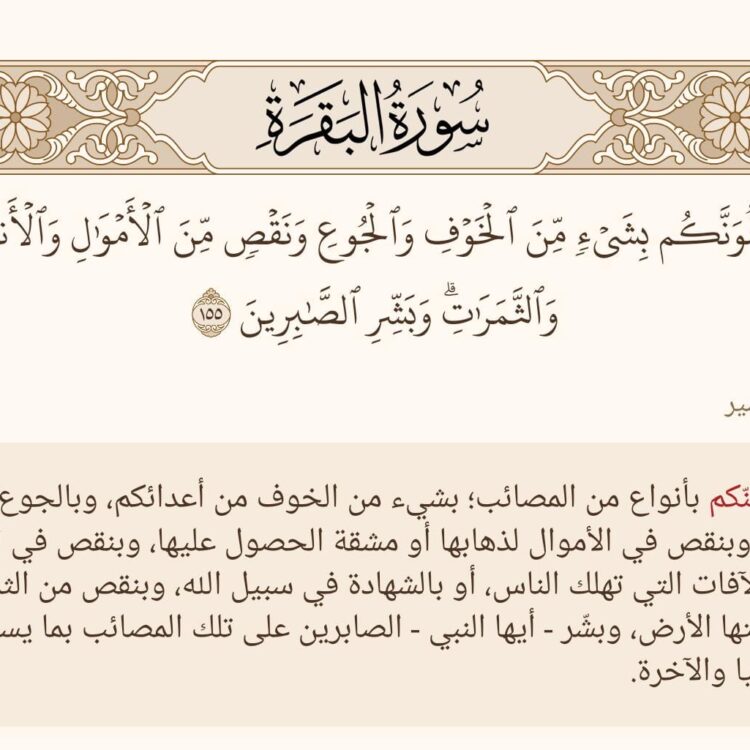 سُورَةُ البَقَرَةِ
وَنَّكُم بِشَيۡءٖ مِّنَ ٱلۡخَوۡفِ وَٱلۡجُوعِ وَنَقۡصٖ مِّنَ ٱلۡأَمۡوَٰلِ وَٱلۡأَن
وَٱلثَّمَرَٰتِۗ وَبَشِّرِ ٱلصَّٰبِرِينَ ١٥٥
نّكم بأنواع من المصائب؛ بشيء من الخوف من أعدائكم، وبالجوع
وبنقص في الأموال لذهابها أو مشقة الحصول عليها، وبنقص في
لآفات التي تهلك الناس، أو بالشهادة في سبيل الله، وبنقص من الث
تها الأرض، وبشّر - أيها النبي - الصابرين على تلك المصائب بما يس
يا والآخرة.